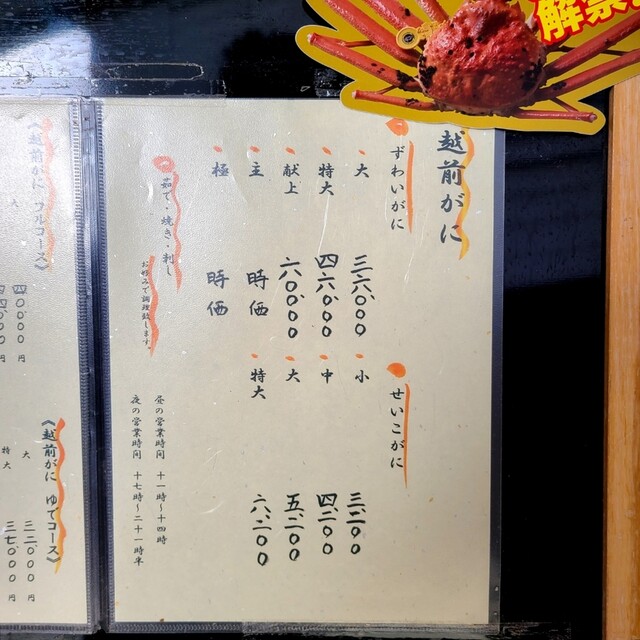 解禁
越前がに
ずわいがに
大 三六、〇〇〇
特大 四六、〇〇〇
献上 六〇、〇〇〇
主 時価
極 時価
茹で・焼き・刺し
お好みで調理致します。
せいこがに
小 三、二〇〇
中 四、二〇〇
大 五、二〇〇
特大 六、二〇〇
昼の営業時間 十一時〜十四時
夜の営業時間 十七時〜二十一時半
《越前がに フルコース》
大 四〇〇〇〇円
《越前がに ゆでコース》
大 三二〇〇〇円
特大 三七〇〇〇円